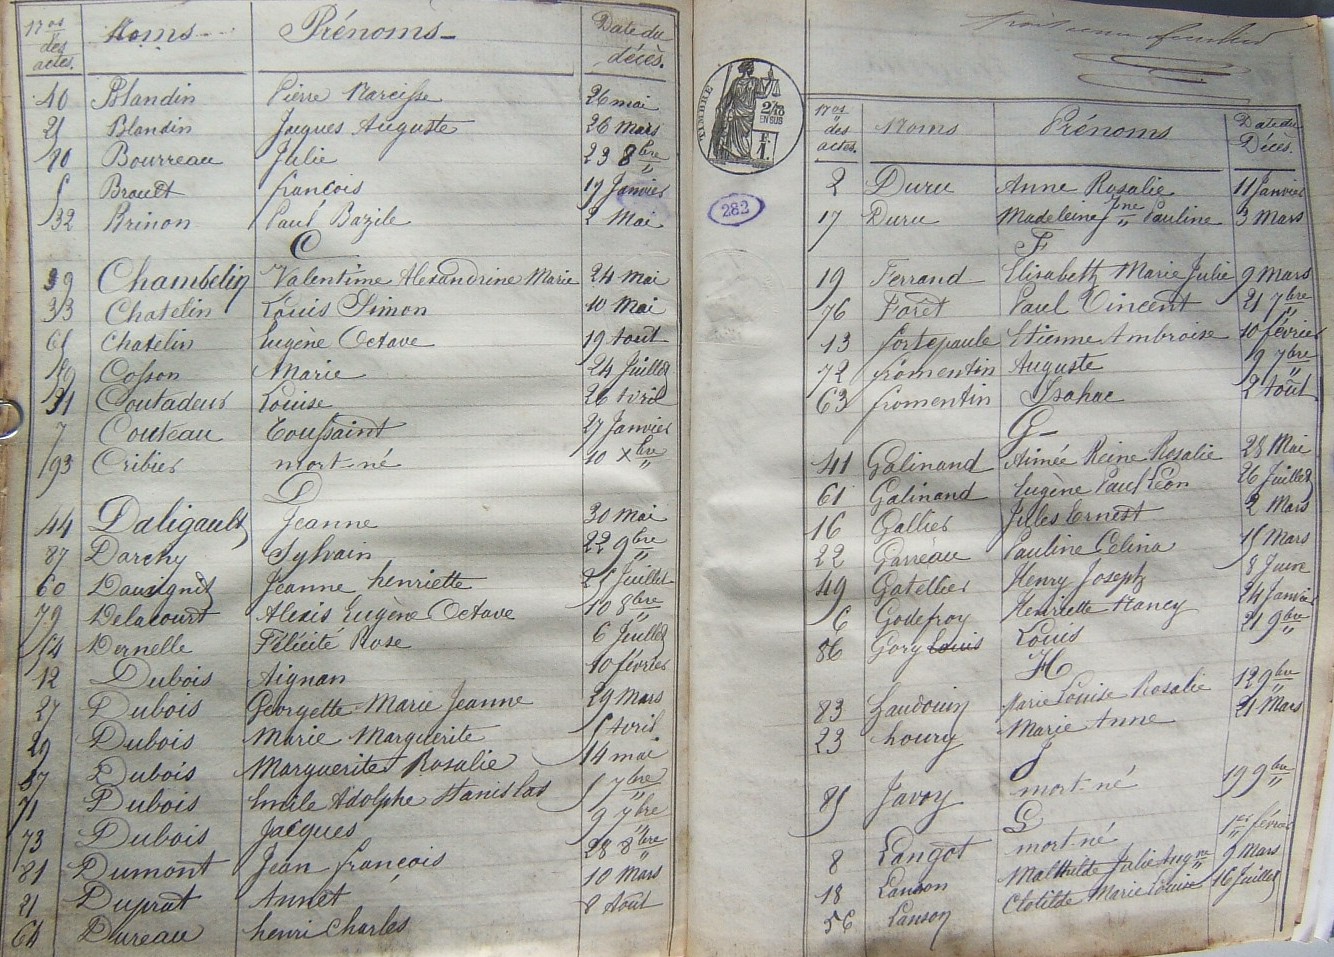 Nos des actes. Noms Prénoms Date du décès.
40 Blandin Pierre Narcisse 26 mai
21 Blandin Jacques Auguste 26 mars
80 Bourreau Julie 23 8bre
5 Brault françois 17 Janvier
32 Brinon Paul Bazile 2 Mai
C
39 Chambelin Valentine Alexandrine Marie 24 mai
33 Chatelin Louis Simon 10 Mai
65 Chatelin Eugène Octave 19 Août
59 Cosson Marie 24 Juillet
31 Coutadeur Louise 26 Avril
7 Couteau Toussaint 27 Janvier
93 Cribier mort-né 10 Xbre
D
44 Daligault Jeanne 30 mai
87 Darchy Sylvain 22 9bre
60 Jeanne henriette 25 Juillet
79 Delacourt Alexis Eugène Octave 10 8bre
54 Dernelle Félicité Rose 6 Juillet
12 Dubois Aignan 10 février
27 Dubois Georgette Marie Jeanne 29 Mars
29 Dubois Marie Marguerite 5 Avril
37 Dubois Marguerite Rosalie 14 mai
71 Dubois Emile Adolphe Stanislas 5 7bre
73 Dubois Jacques 9 7bre
81 Dumont Jean françois 28 8bre
21 Duprat Annet 10 Mars
64 Dureau henri Charles 8 Août
TIMBRE
2/10 EN SUS
F. 1.
282
Nos des actes. Noms Prénoms Date du Décès.
2 Duru Anne Rosalie 11 Janvier
17 Duru Madeleine Jne Pauline 3 Mars
F
19 Ferrand Elisabeth Marie Julie 9 Mars
76 Forêt Paul Vincent 21 7bre
13 fortepaule Etienne Ambroise 10 février
72 fromentin Auguste 9 7bre
63 fromentin Isahac 2 Août
G
41 Galinand Aimée Reine Rosalie 28 Mai
61 Galinand Eugène Paul Léon 26 Juillet
16 Gallier Jules Ernest 2 Mars
22 Garreau Pauline Célina 15 Mars
49 Gatellier Henry Joseph 8 Juin
6 Godefroy Henriette Nancy 24 Janvier
86 Gory Louis Louis 21 9bre
H
83 haudouin Marie Louise Rosalie 12 9bre
23 houry Marie Anne 21 Mars
J
85 Javoy mort-né 19 9bre
L
8 Langot mort né 1er février
18 Lanson Mathilde Julie Augne 9 Mars
56 Lanson Clotilde Marie Louise 16 Juillet